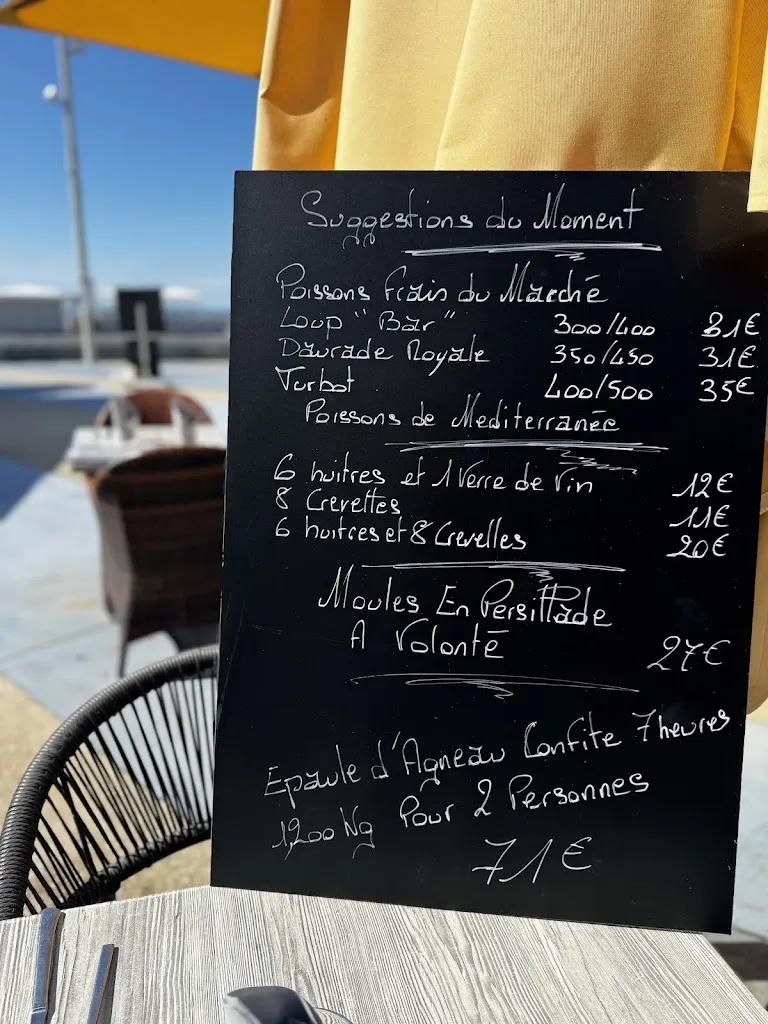 Suggestions du Moment
Poissons frais du Marché
Loup "Bar" 300/400 31€
Daurade Royale 350/450 31€
Turbot 400/500 35€
Poissons de Mediterranée
6 huitres et 1 Verre de Vin 12€
8 Crevettes 11€
6 huitres et 8 Crevettes 20€
Moules En Persillade
A Volonté 27€
Epaule d'Agneau Confite 7 heures
1,200 Kg Pour 2 Personnes
71€